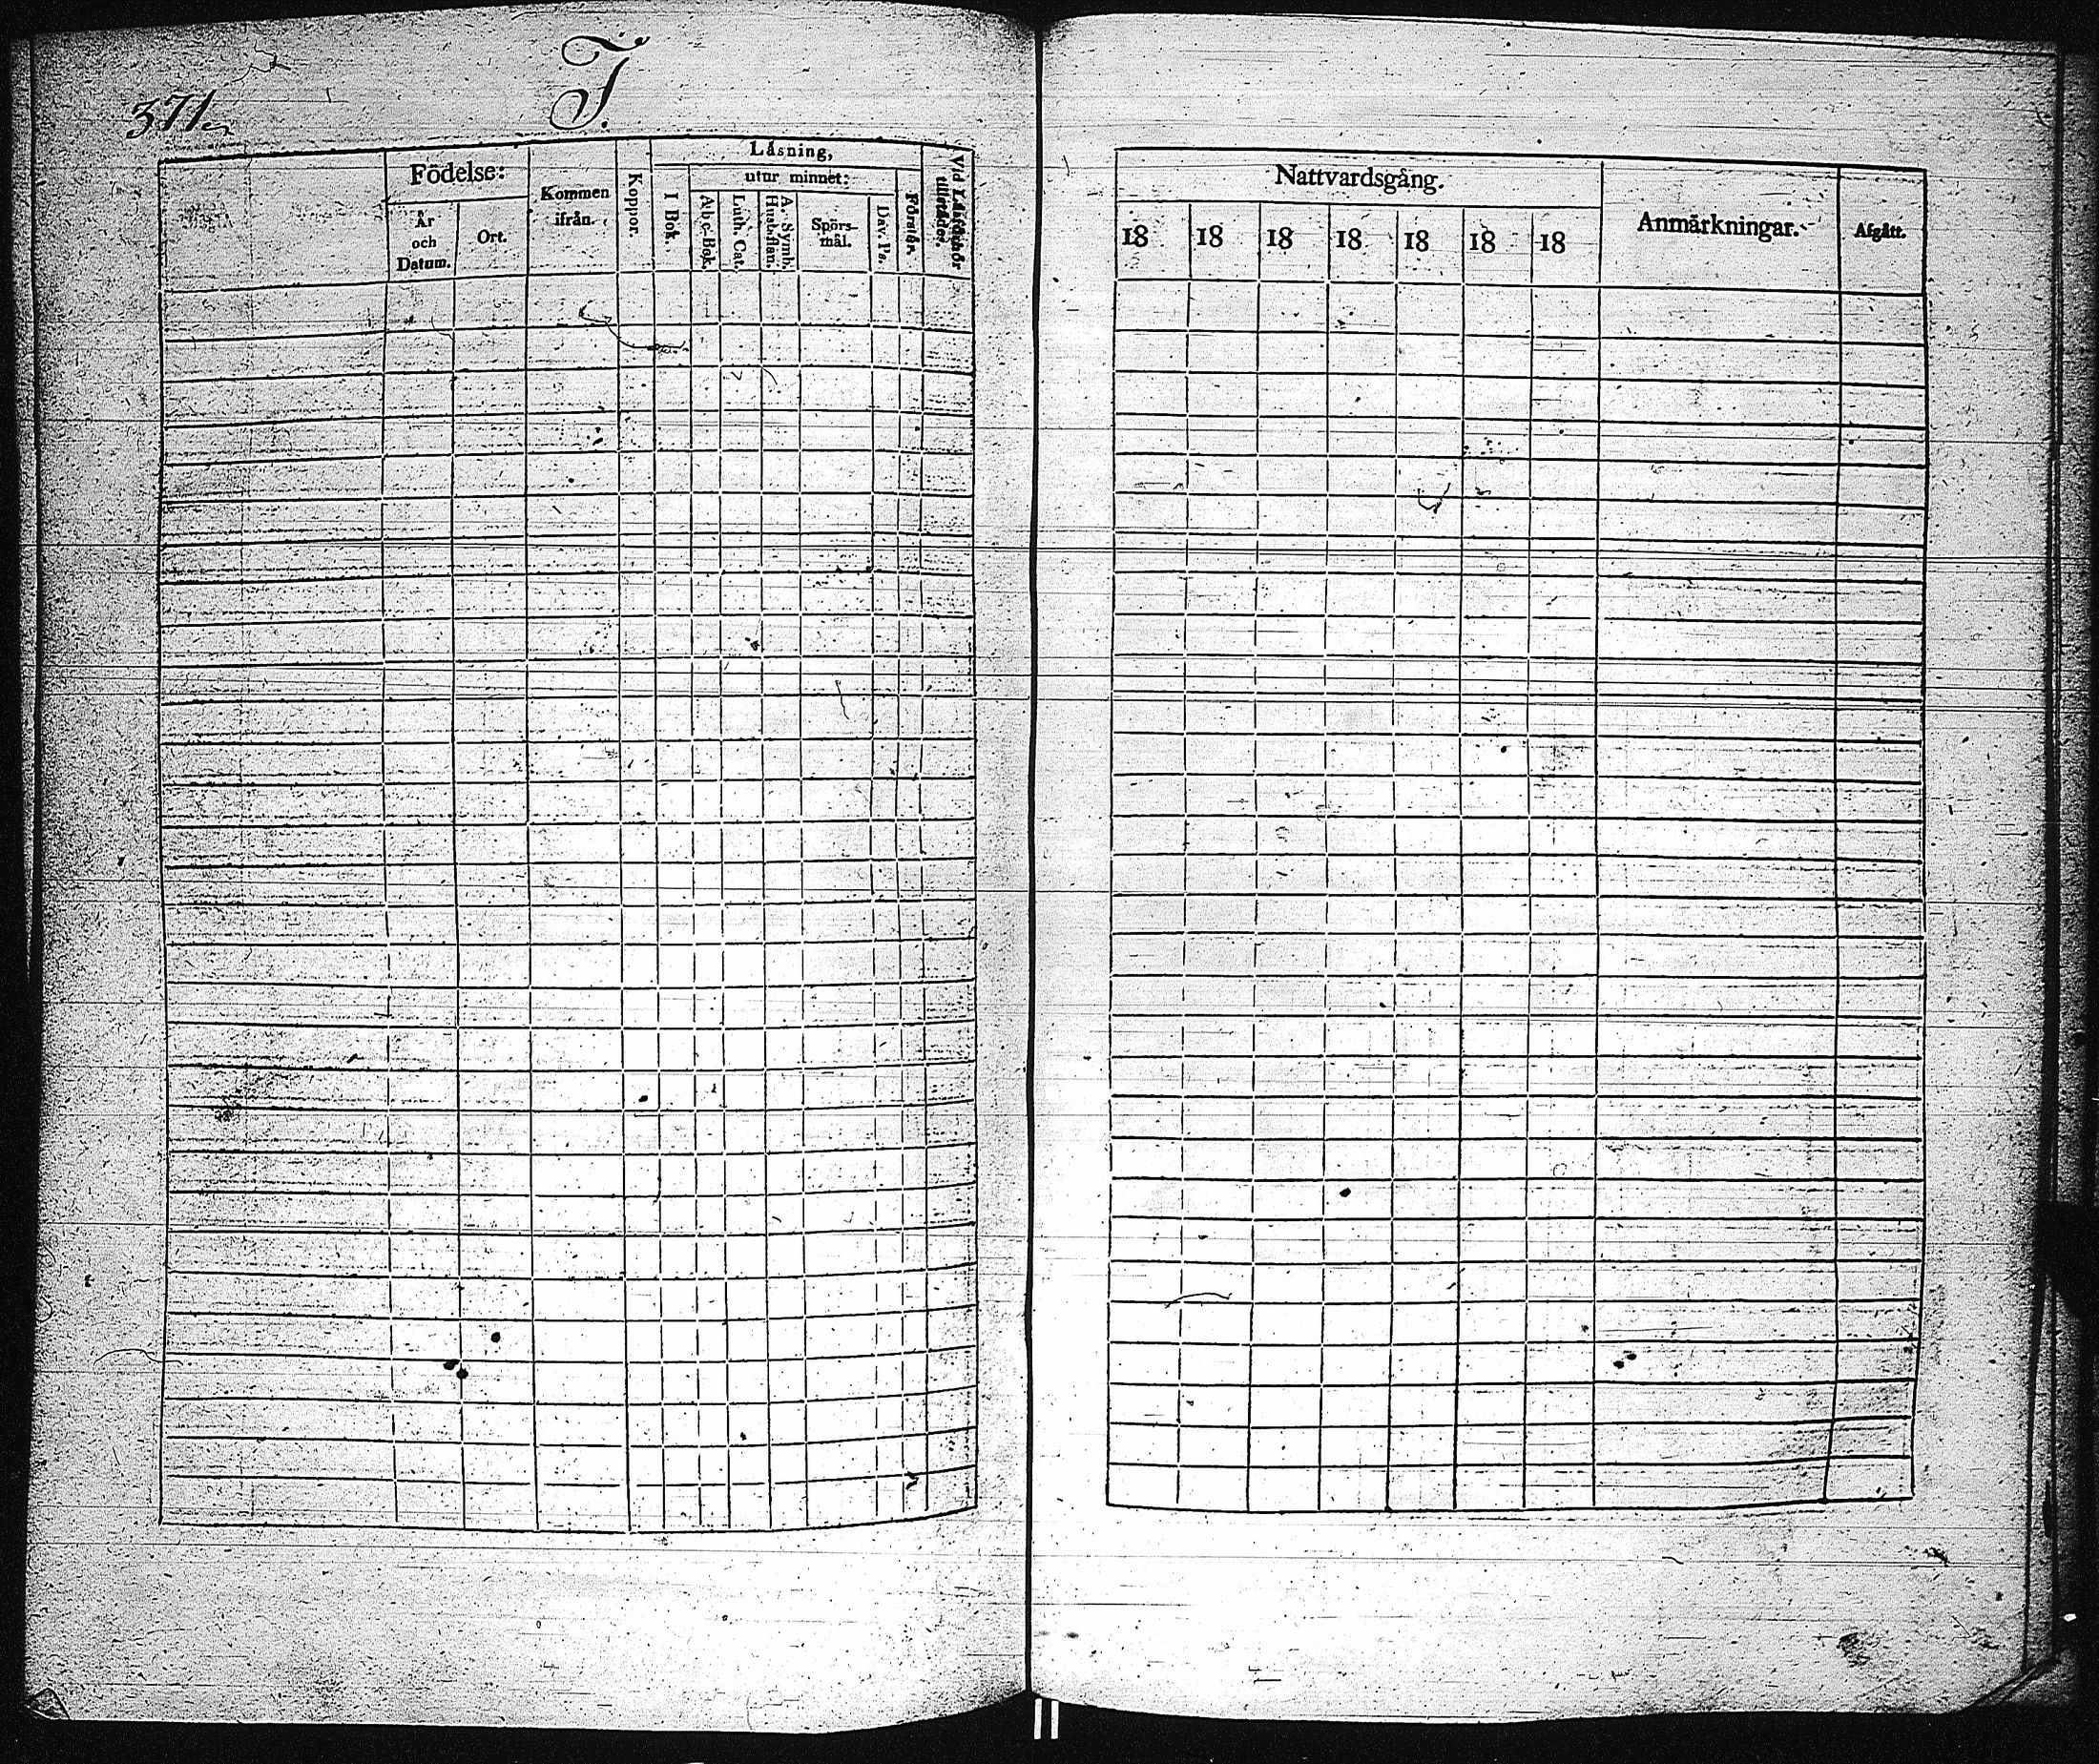 371.
J.
Födelse: Kommen ifrån. Koppor. Läsning,
utur minnet:
År och Datum. Ort. I Bok. A-b-c-Bok. Luth. Cat. A. Symb. Hustaflan. Spörs-mål. Dav. Ps. Förstår. Vid Läsförhör tillstädes.
Nattvardsgång. Anmärkningar. Afgått.
18 18 18 18 18 18 18